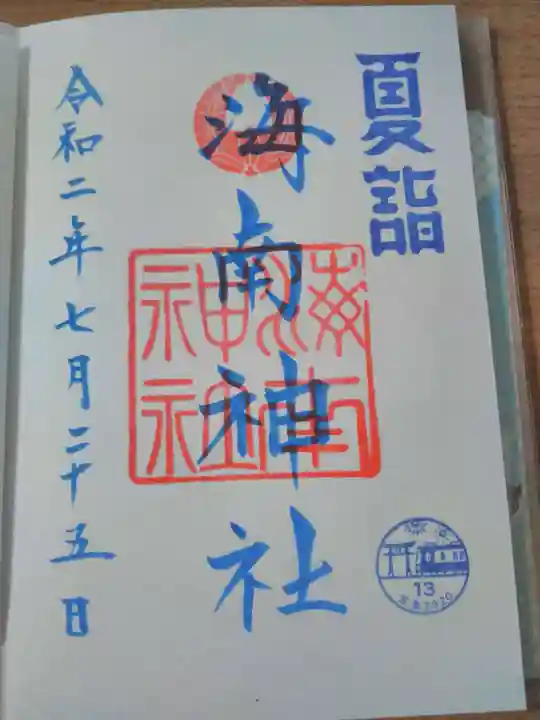 夏詣
海南神社
海南神社
13
令和二年七月二十五日